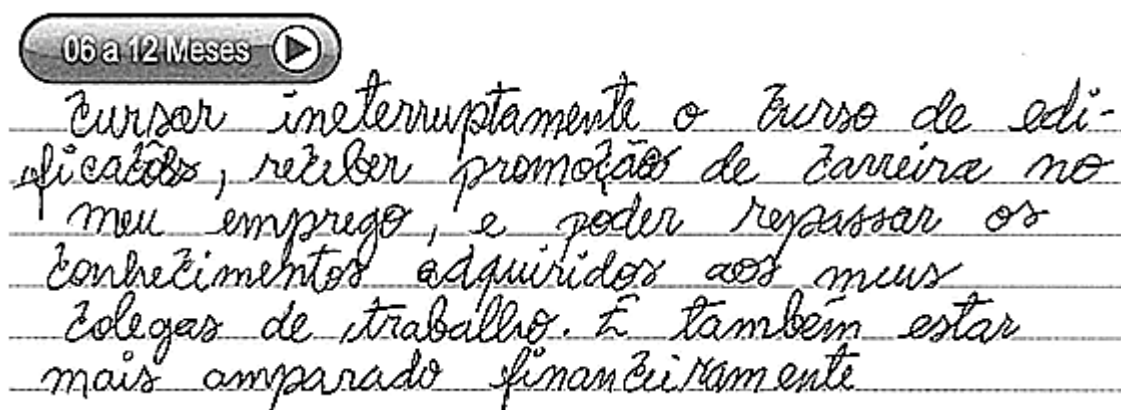 06 a 12 Meses
Cursar ineterruptamente o curso de edi-
ficações, receber promoção de carreira no
meu emprego, e poder repassar os
conhecimentos adquiridos aos meus
colegas de traballho. E também estar
mais amparado financeiramente